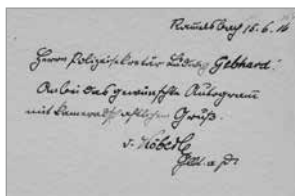 15.6.16
Herrn Polizeisekretär Ludwig Gebhard!
Anbei das gewünschte Autogramm
mit kameradschaftlichem Gruß.
v. Höberle